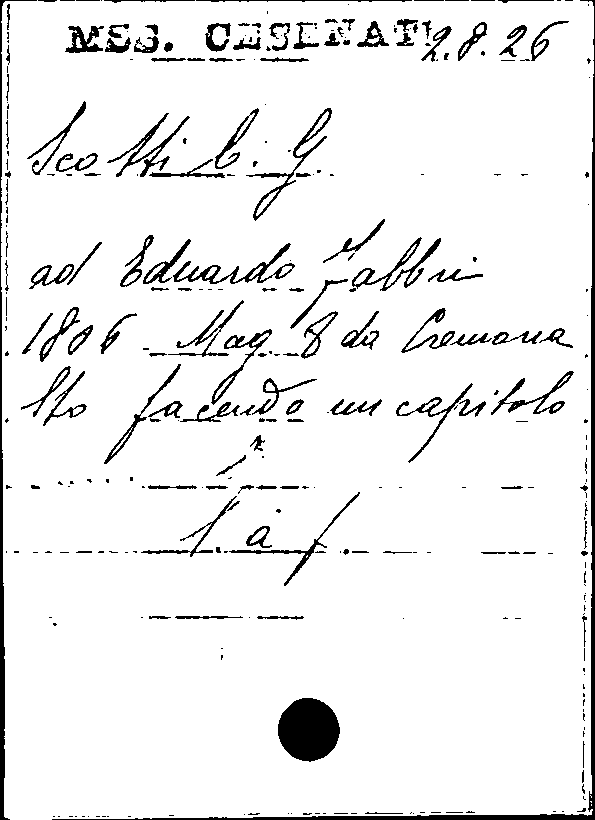 MSS. CESENATI 2.8.26
Scotti C. G.
ad Eduardo Fabbri
1806 Mag 8 da Cremona
Sto facendo un capitolo
l. a f.